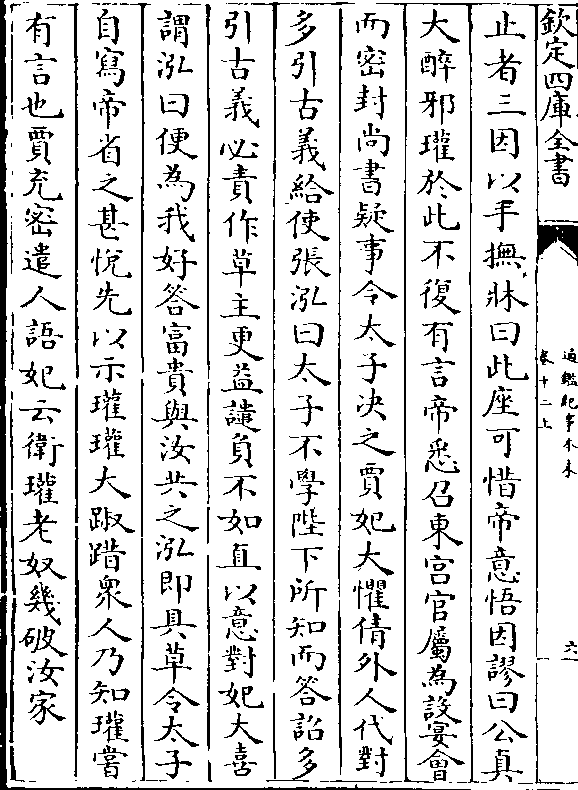 欽定四庫全書
通鑑紀事本末
卷十二上
六
止者三因以手撫牀曰此座可惜帝意悟因謬曰公真
大醉邪瓘於此不復有言帝悉召東宮官屬為設宴會
而密封尚書疑事令太子決之賈妃大懼倩外人代對
多引古義給使張泓曰太子不學陛下所知而答詔多
引古義必責作草主更益譴負不如直以意對妃大喜
謂泓曰便為我好答富貴與汝共之泓即具草令太子
自寫帝省之甚悅先以示瓘瓘大踧踖眾人乃知瓘嘗
有言也賈充密遣人語妃云衛瓘老奴幾破汝家